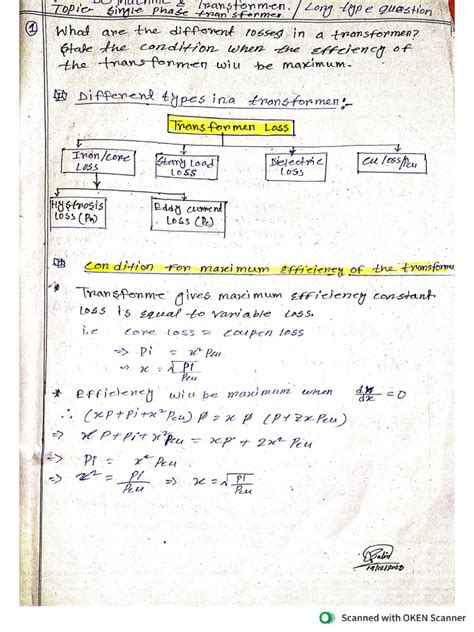 DC Machine & Transformer.
Topic- Single Phase transformer / Long type question
① What are the different losses in a transformer?
State the condition when the efficiency of
the transformer will be maximum.
Different types in a transformer:-
Transformer Loss
Iron/core Loss
Stray Load Loss
Dielectric Loss
CU loss/Pcu
Hystrosis Loss (Ph)
Eddy current Loss (Pc)
Condition For maximum Efficiency of the transforme
* Transforme gives maximum Efficiency constant
Loss is equal to variable Loss.
i.e core loss = coupen loss
⇒ Pi = x² Pcu
⇒ x = √Pi/Pcu
* Efficiency will be maximum when dη/dx = 0
∴ (xP+Pi+x²Pcu) P = x P (P+2xPcu)
⇒ xP+Pi+x²Pcu = xP + 2x² Pcu
⇒ Pi = x² Pcu
⇒ x² = Pi/Pcu ⇒ x = √Pi/Pcu
19/12/2020
Scanned with OKEN Scanner